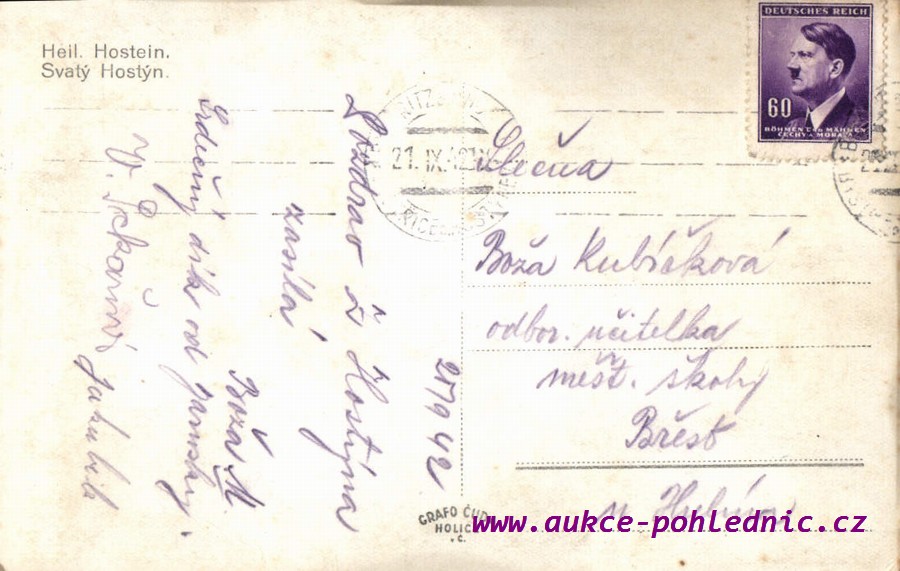 Heil. Hostein.
Svatý Hostýn.
DEUTSCHES REICH
60
BÖHMEN U. MÄHREN
ČECHY A MORAVA
21. IX. 42
Pozdrav z Hostýna
zasílá
Boža M
Srdečný dík od
V.
20/9 42
Slečna
Boža Kubíčková
odbor. učitelka
měšť. školy
Břest
u Hulína
GRAFO ČUDA
HOLICE
www.aukce-pohlednic.cz